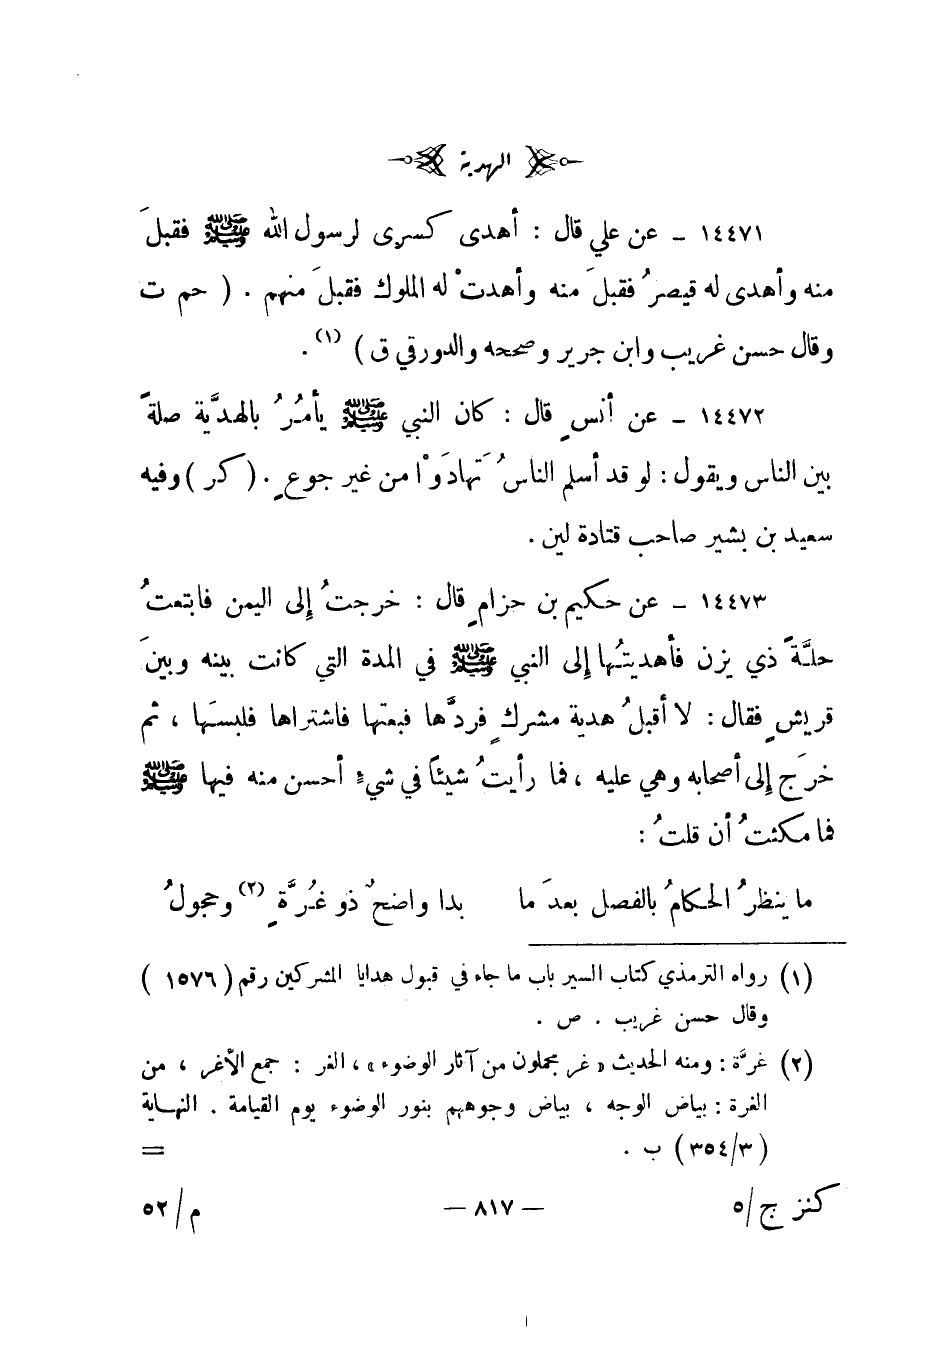 الهدية
١٤٤٧١ ـ عن علي قال : أهدى كسرى لرسول الله ﷺ فقبلَ
منه وأهدى له قيصرُ فقبلَ منه وأهدتْ له الملوك فقبلَ منهم . ( حم ت
وقال حسن غريب وابن جرير وصححه والدورقي ق ) (١) .
١٤٤٧٢ ـ عن أنسٍ قال : كان النبي ﷺ يأمُرُ بالهديَّة صلةً
بين الناس ويقول : لو قد أسلم الناسُ تَهادَوْا من غير جوعٍ . ( كر ) وفيه
سعيد بن بشير صاحب قتادة لين .
١٤٤٧٣ ـ عن حكيم بن حزامٍ قال : خرجتُ إلى اليمن فابتعتُ
حلَّةً ذي يزن فأهديتُها إلى النبي ﷺ في المدة التي كانت بينه وبينَ
قريشٍ فقال : لا أقبلُ هدية مشركٍ فردَّها فبعتها فاشتراها فلبسَها ، ثم
خرَج إلى أصحابه وهي عليه ، فما رأيتُ شيئاً في شيءٍ أحسن منه فيها ﷺ
فما مكثتُ أن قلتُ :
ما ينظرُ الحكامُ بالفصل بعدَ ما بدا واضحٌ ذو غُرَّةٍ (٢) وحجولُ
(١) رواه الترمذي كتاب السير باب ما جاء في قبول هدايا المشركين رقم ( ١٥٧٦ )
وقال حسن غريب . ص .
(٢) غرَّة : ومنه الحديث « غر محجلون من آثار الوضوء » ، الغر : جمع الأغر ، من
الغرة : بياض الوجه ، بياض وجوههم بنور الوضوء يوم القيامة . النهاية
( ٣٥٤/٣ ) ب . =
كنز ج/٥ — ٨١٧ — م/٥٢